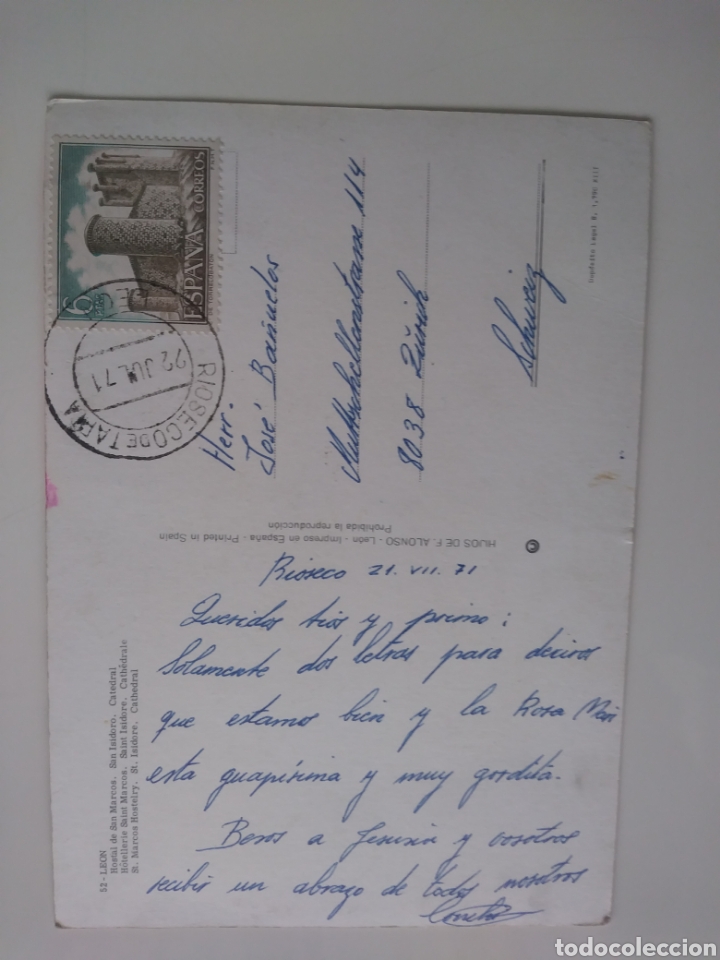 52 - LEON
Hostal de San Marcos. San Isidoro. Catedral
Hôtellerie Saint Marcos. Saint Isidore. Cathédrale
St. Marcos Hostelry. St. Isidore. Cathedral
Rioseco 21. VII. 71
Queridos tios y primo:
Solamente dos letras para deciros
que estamos bien y la Rosa Mari
esta guapísima y muy gordita.
Besos a y vosotros
recibir un abrazo de todos nosotros
Conchi
HIJOS DE F. ALONSO - León - Impreso en España - Printed in Spain
Prohibida la reproducción
ESPAÑA CORREOS
6 PTAS
RIOSECO DE TAPIA
22 JUL 71
Herr.
José Bañuelos
Mutschellenstrasse 114
8038 Zürich
Schweiz
todocoleccion